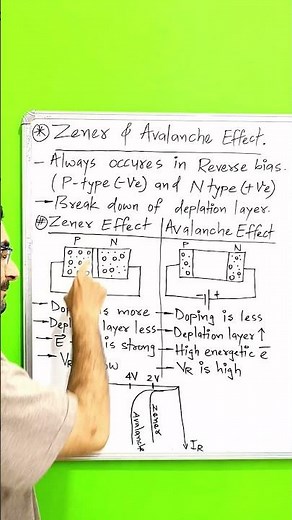 * Zener & Avalanche Effect.
- Always occures in Reverse bias.
(P-type (-Ve) and N type (+Ve)
→ Break down of deplation layer.
# Zener Effect
P N
→ Doping is more
→ Depl layer less
→ E is strong
→ VR low
Avalanche Effect
P N
- +
→ Doping is less
→ Deplation layer ↑
→ High energetic e̅
→ VR is high
4V 2V
Avalanche
Zener
IR